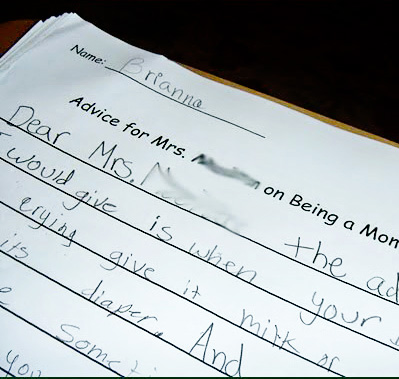 Name: Brianna
Advice for Mrs. on Being a Mom
Dear Mrs. the ad
I would give is when your
crying give it milk or
its diaper. And
Someti
you